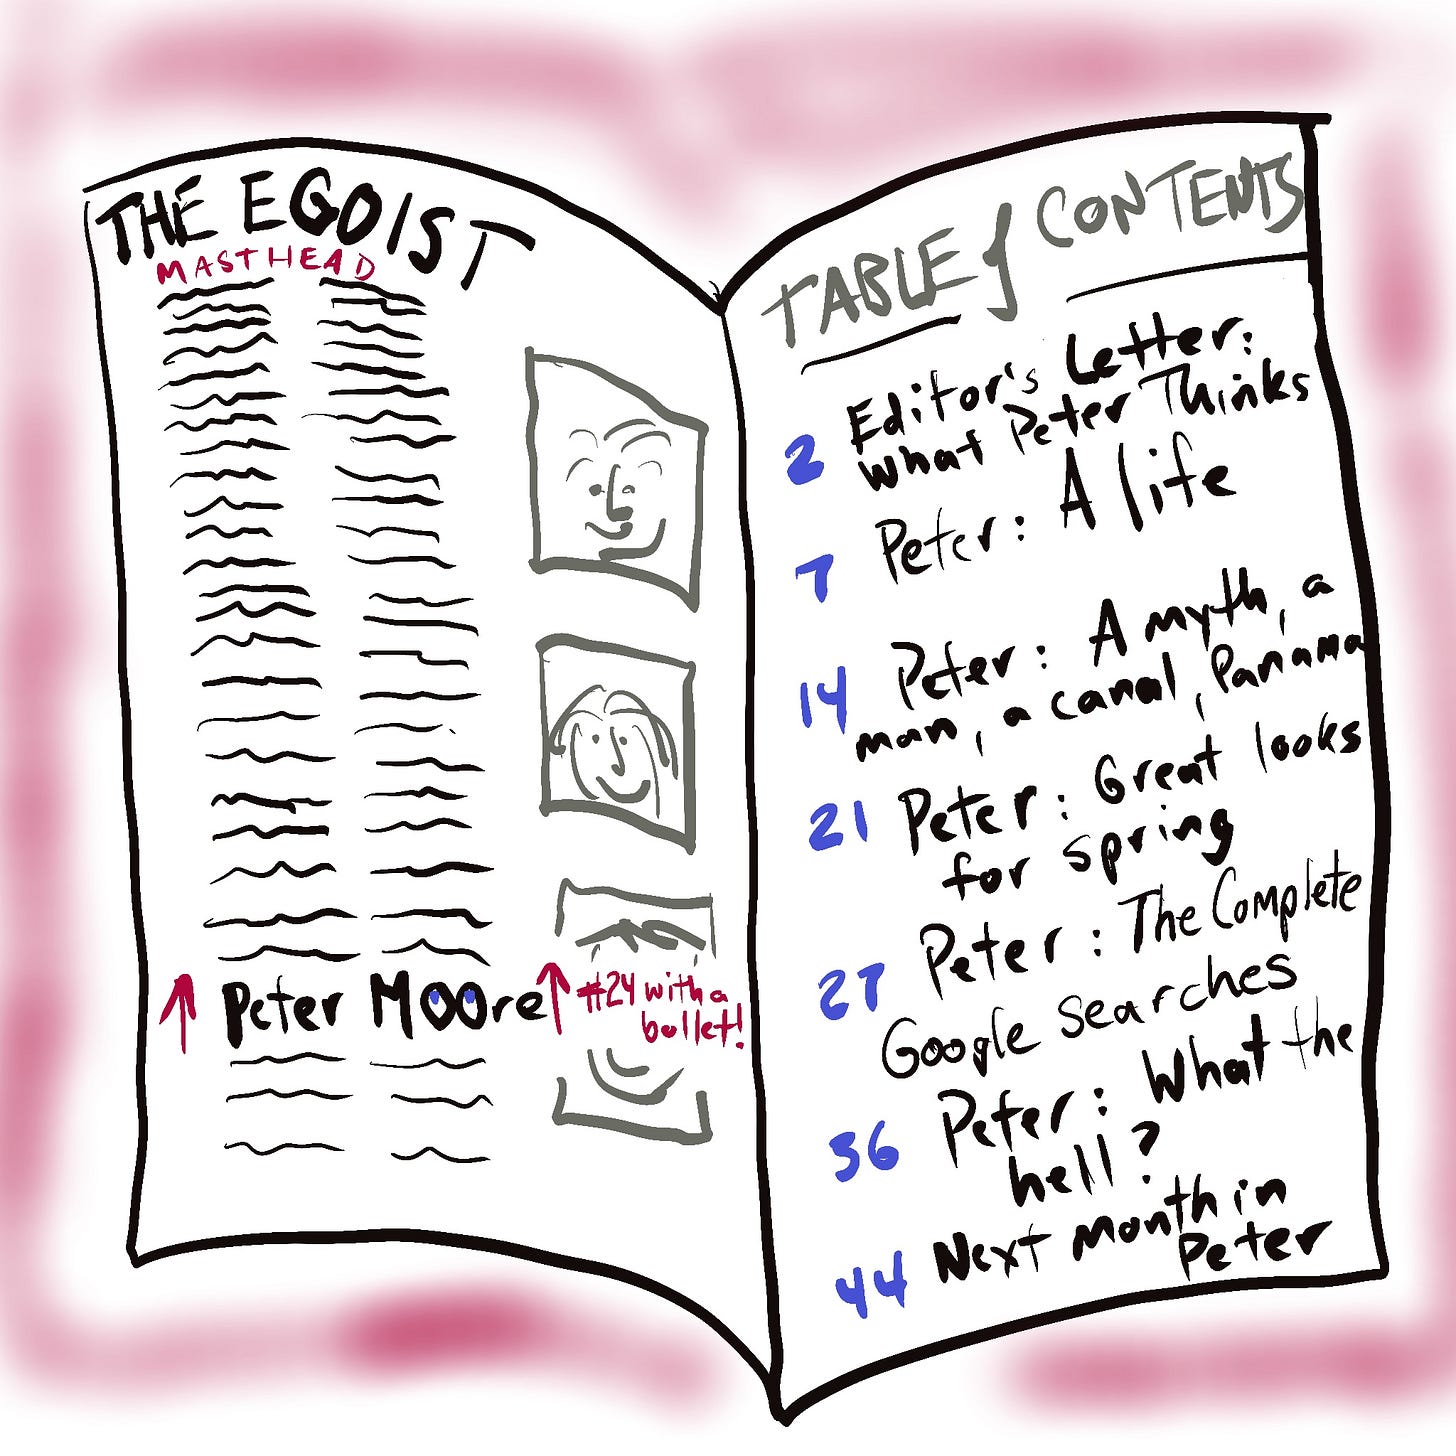 THE EGOIST
MASTHEAD
Peter Moore
#24 with a
bullet!
TABLE of CONTENTS
2 Editor's Letter:
What Peter Thinks
7 Peter: A life
14 Peter: A myth, a
man, a canal, Panama
21 Peter: Great looks
for spring
27 Peter: The Complete
Google Searches
36 Peter: What the
hell?
44 Next month in
Peter